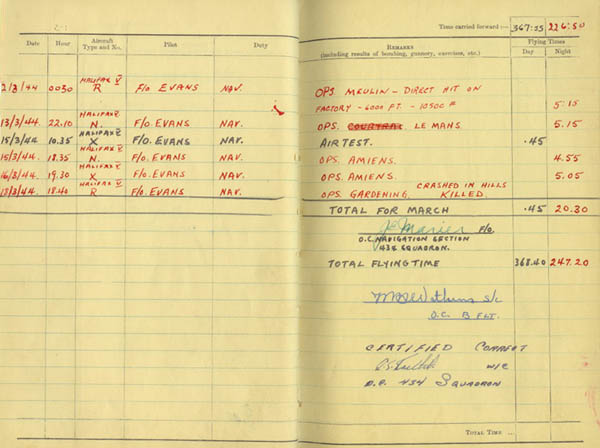 Time carried forward :— 367·55 226·50
Date Hour Aircraft Type and No. Pilot Duty
REMARKS (including results of bombing, gunnery, exercises, etc.) Flying Times
Day Night
2/3/44 0030 HALIFAX V R F/O EVANS NAV. OPS. MEULIN – DIRECT HIT ON
FACTORY – 6000 FT. – 10500 # 5.15
13/3/44 22.10 HALIFAX V N. F/O. EVANS NAV. OPS. COURTRAI LE MANS. 5.15
15/3/44 10.35 HALIFAX V X F/O. EVANS NAV. AIR TEST. .45
15/3/44. 18.35 HALIFAX V N. F/O. EVANS NAV. OPS. AMIENS. 4.55
16/3/44 19.30 HALIFAX V X F/O. EVANS NAV. OPS. AMIENS. 5.05
18.40 HALIFAX V R F/O. EVANS NAV. OPS. GARDENING. CRASHED IN HILLS KILLED.
TOTAL FOR MARCH .45 20.30
F/O.
O.C. NAVIGATION SECTION
SQUADRON.
TOTAL FLYING TIME 368.40 247.20
S/L
O.C. B FLT.
CERTIFIED CORRECT
W/C
434 SQUADRON
TOTAL TIME